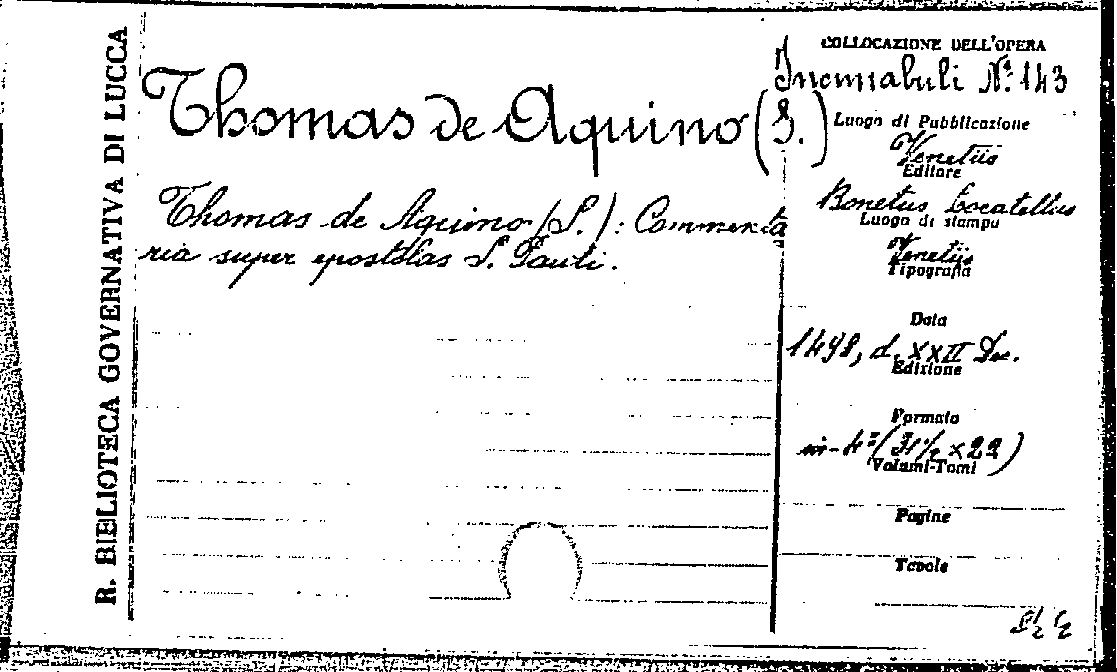 R. BIBLIOTECA GOVERNATIVA DI LUCCA
Thomas de Aquino (S.)
Thomas de Aquino (S.): Commenta
ria super epostolas S. Pauli.
COLLOCAZIONE DELL'OPERA
Incunabuli Nº 143
Luogo di Pubblicazione
Venetiis
Editore
Bonetus Locatellus
Luogo di stampa
Venetijs
Tipografia
Data
1498, d. XXII Dec.
Edizione
Formato
in-4º (31½ x 22)
Volumi-Tomi
Pagine
Tavole